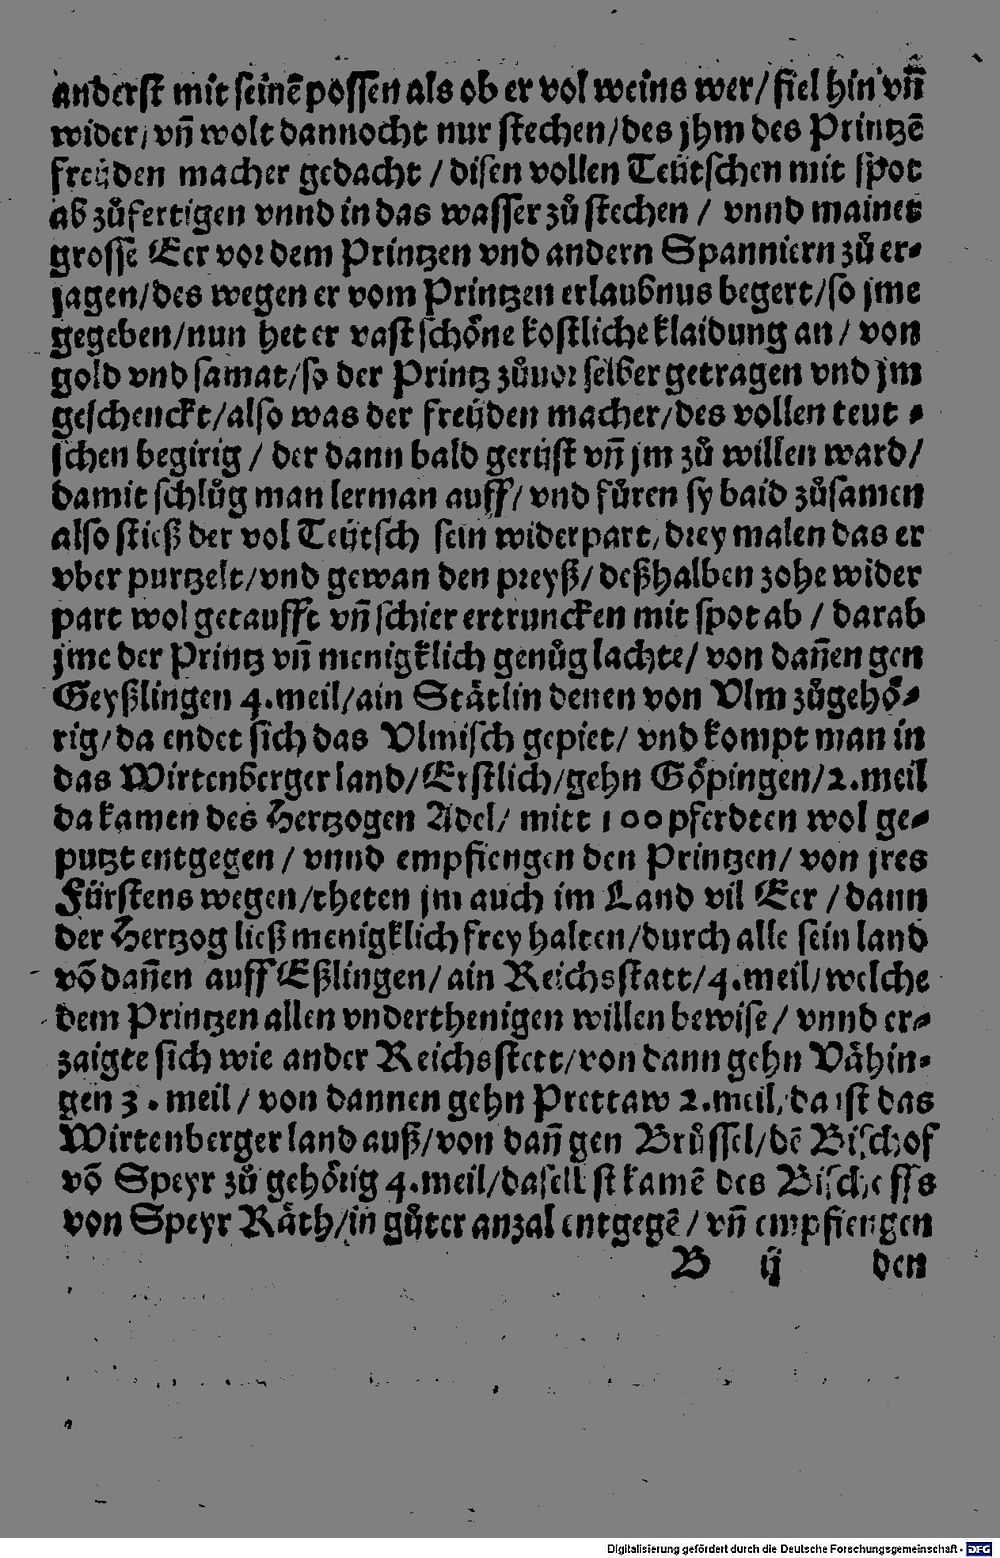 anderst mit seinē possen als ob er vol weins wer/ fiel hin vñ
wider/ vñ wolt dannocht nur stechen/ des jhm des Printzē
freüden macher gedacht / disen vollen Teütschen mit spot
ab zůfertigen vnnd in das wasser zů stechen / vnnd mainet
grosse Eer vor dem Printzen vnd andern Spanniern zů er⸗
jagen/ des wegen er vom Printzen erlaubnus begert/ so jme
gegeben/ nun het er vast schöne kostliche klaidung an / von
gold vnd samat/ so der Printz zůuor selber getragen vnd jm
geschenckt/ also was der freüden macher/ des vollen teut⸗
schen begirig / der dann bald gerüst vñ jm zů willen ward/
damit schlůg man lerman auff/ vnd fůren sy baid zůsamen
also stieß der vol Teütsch sein widerpart/ drey malen das er
vber purtzelt/ vnd gewan den preyß/ deßhalben zohe wider
part wol getaufft vñ schier ertruncken mit spot ab / darab
jme der Printz vñ menigklich genůg lachte/ von dañen gen
Geyßlingen 4. meil/ ain Stätlin denen von Vlm zůgehö⸗
rig/ da endet sich das Vlmisch gepiet/ vnd kompt man in
das Wirtenberger land/ Erstlich/ gehn Göpingen/ 2. meil
da kamen des Hertzogen Adel/ mitt 100 pferdten wol ge⸗
putzt entgegen / vnnd empfiengen den Printzen/ von jres
Fürstens wegen/ theten jm auch im Land vil Eer / dann
der Hertzog ließ menigklich frey halten/ durch alle sein land
vō dañen auff Eßlingen/ ain Reichsstatt/ 4. meil/ welche
dem Printzen allen vnderthenigen willen bewise/ vnnd er⸗
zaigte sich wie ander Reichsstett/ von dann gehn Vähin⸗
gen 3. meil / von dannen gehn Prettaw 2. meil/ da ist das
Wirtenberger land auß/ von dañ gen Brüssel/ dē Bischof
vō Speyr zů gehörig 4. meil/ daselbst kamē des Bischoffs
von Speyr Räth/ in gůter anzal entgegē / vñ empfiengen
B ij den
Digitalisierung gefördert durch die Deutsche Forschungsgemeinschaft - DFG